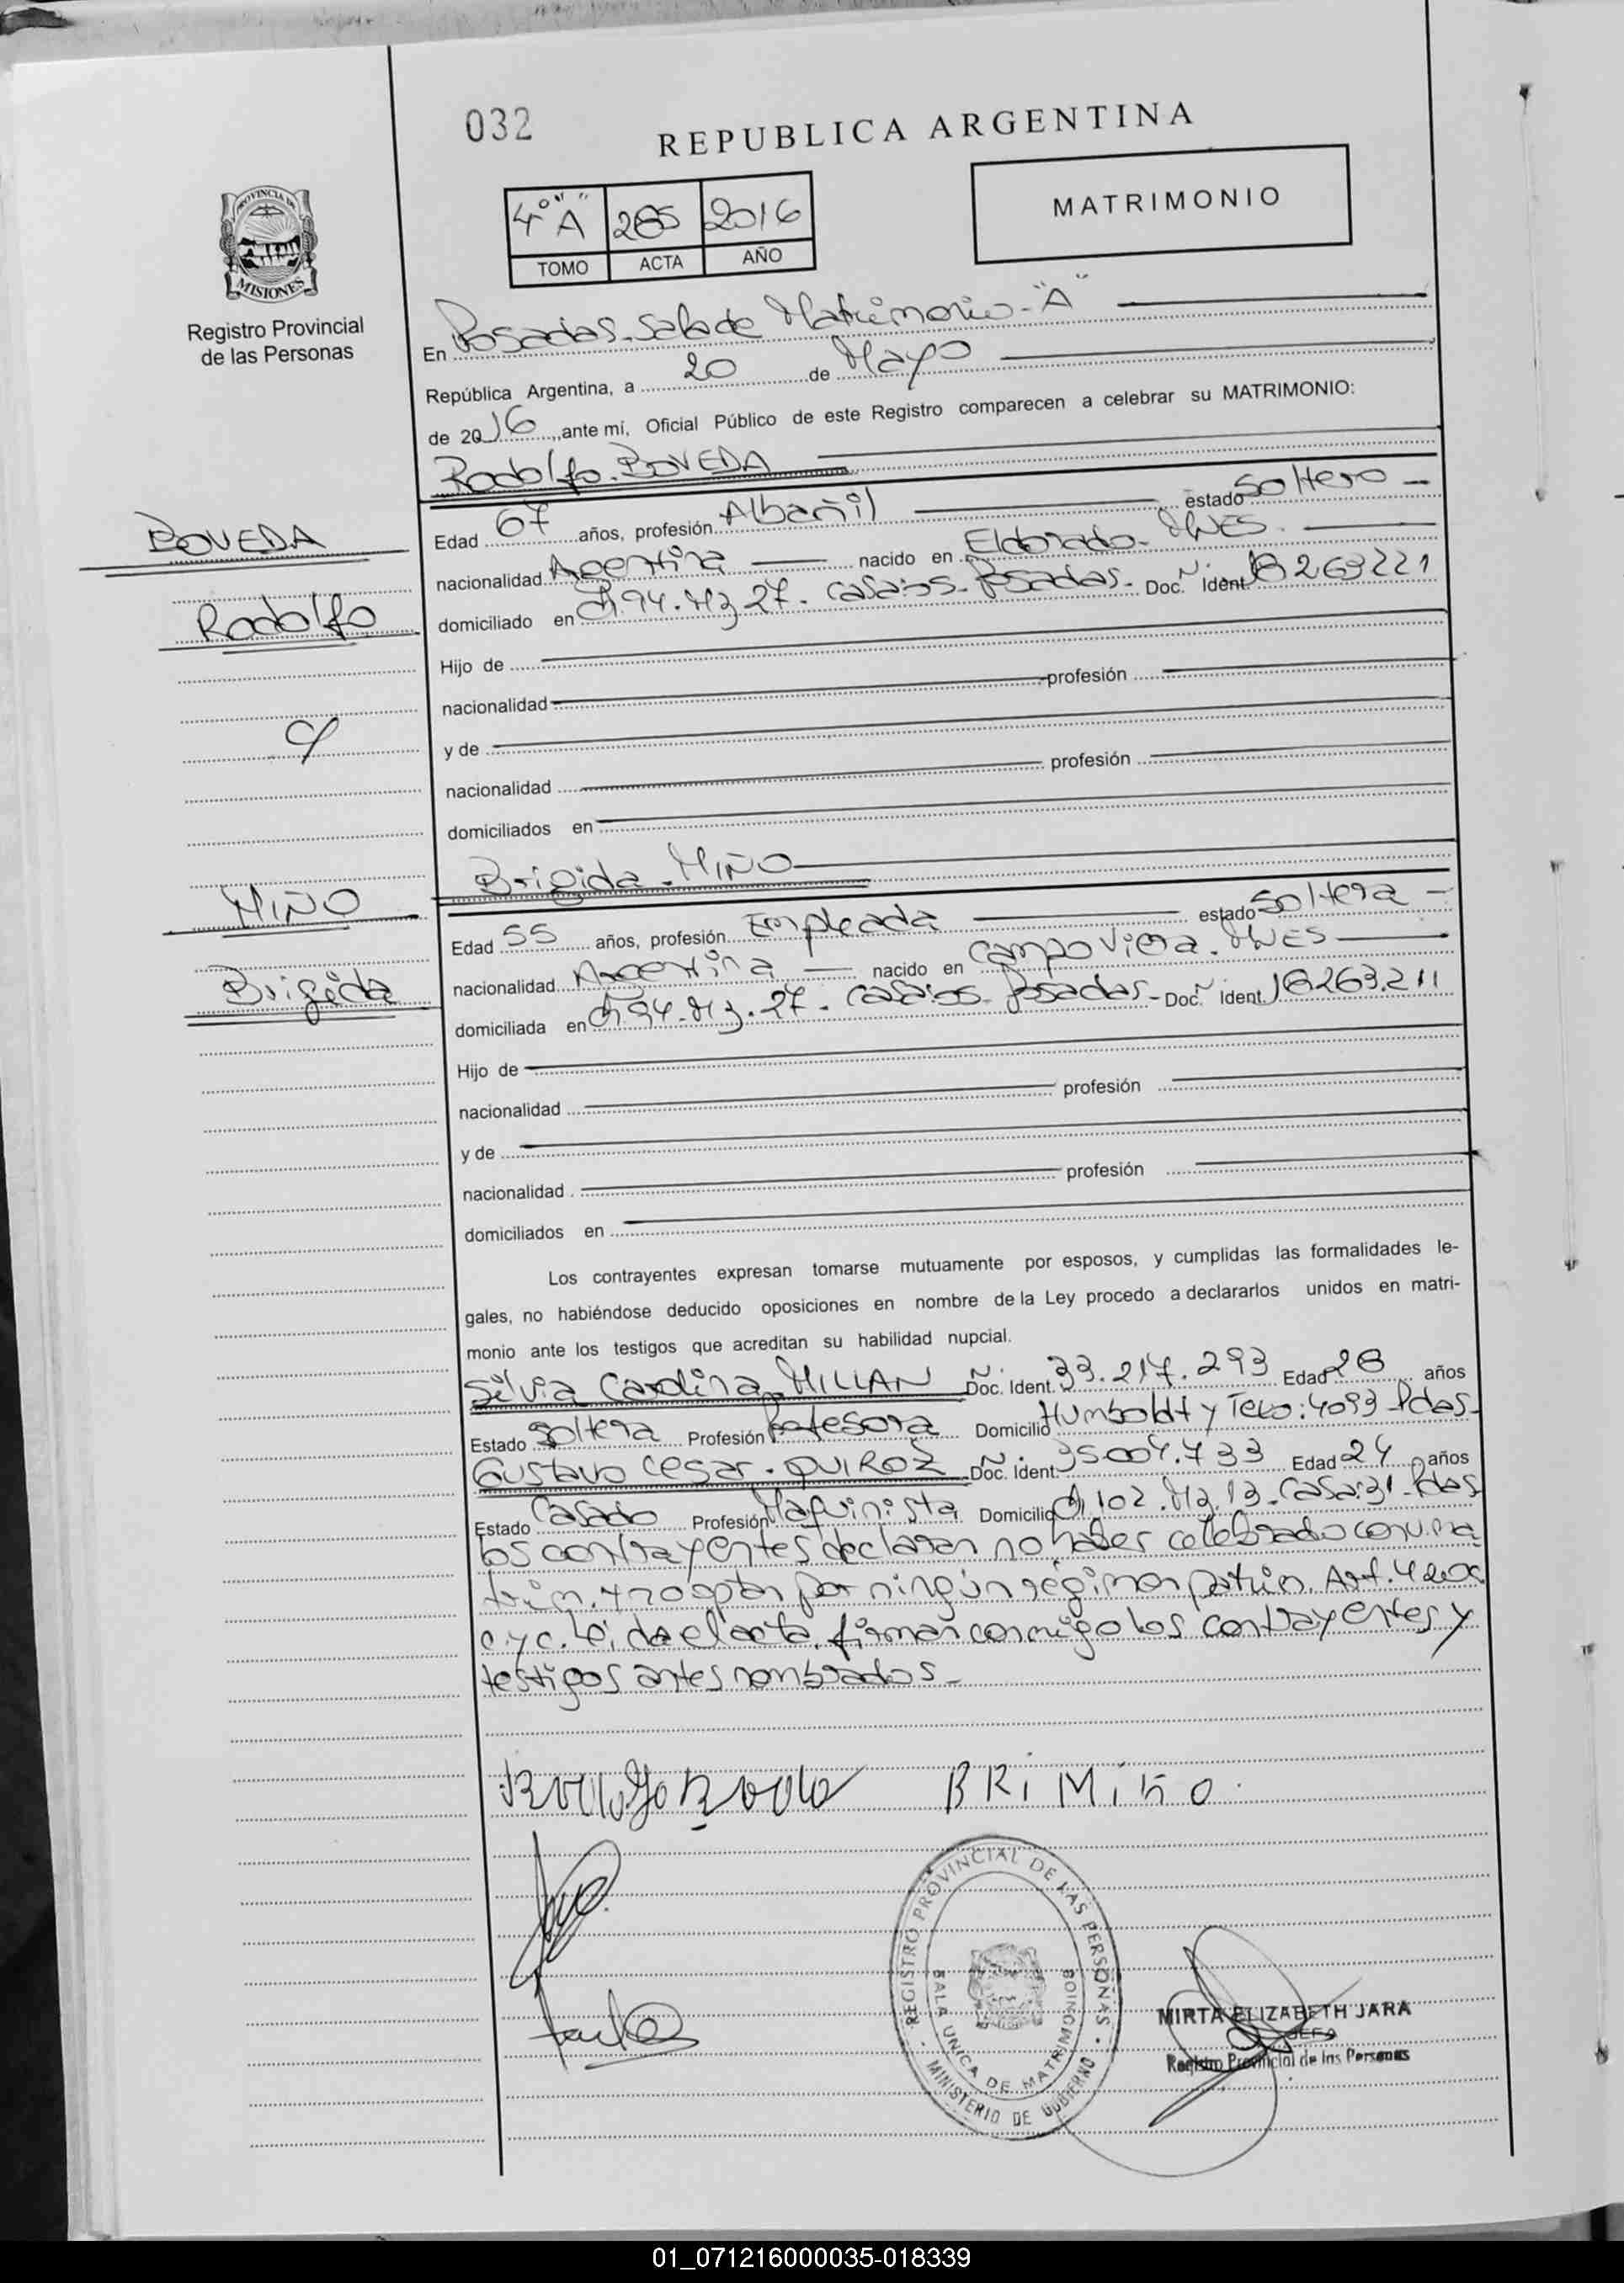 032
REPUBLICA ARGENTINA
4° "A" 265 2016
TOMO ACTA AÑO
MATRIMONIO
PROVINCIA DE
MISIONES
Registro Provincial
de las Personas
En Posadas. Sala de Matrimonio - "A"
República Argentina, a 20 de Mayo
de 2016, ante mí, Oficial Público de este Registro comparecen a celebrar su MATRIMONIO:
Rodolfo. POVEDA
POVEDA
Rodolfo
Edad 67 años, profesión Albañil estado Soltero
nacionalidad Argentina nacido en Eldorado. MNES.
domiciliado en Ch. 94. Mz 27. Casa: 55. Posadas. Doc. Ident. 18263221
Hijo de
nacionalidad profesión
y de
c/
nacionalidad profesión
domiciliados en
Brigida. MIÑO
MIÑO
Brigida
Edad 55 años, profesión Empleada estado Soltera
nacionalidad Argentina nacido en Campo Viera. MNES
domiciliada en Ch. 94. Mz. 27. Casa: 55. Posadas. Doc. Ident. 18.263.211
Hijo de
nacionalidad profesión
y de
nacionalidad profesión
domiciliados en
Los contrayentes expresan tomarse mutuamente por esposos, y cumplidas las formalidades le-
gales, no habiéndose deducido oposiciones en nombre de la Ley procedo a declararlos unidos en matri-
monio ante los testigos que acreditan su habilidad nupcial.
Silvia Carolina MILLAN Doc. Ident. 33.217.293 Edad 28 años
Estado Soltera Profesión Profesora Domicilio Humboldt y Teko: 4093 Pdas.
Gustavo Cesar. QUIROZ Doc. Ident. 35004.733 Edad 24 años
Estado Casado Profesión Maquinista Domicilio Ch. 102. Mz. 13. Casa: 31. Pdas
los contrayentes declaran no haber celebrado conv. ma
trim. y no optan por ningún régimen patrim. Art. 420
c. y c. Leída el acta, firman conmigo los contrayentes y
testigos antes nombrados.
BRi Miño.
REGISTRO PROVINCIAL DE LAS PERSONAS
SALA UNICA DE MATRIMONIOS
MINISTERIO DE GOBIERNO
MIRTA ELIZABETH JARA
JEFA
Registro Provincial de las Personas
01_071216000035-018339